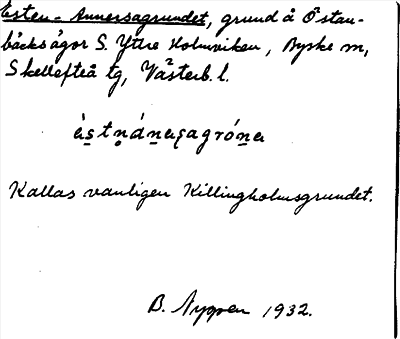 Esten-Annersagrundet, grund å Östan-
bäcks ägor S. Yttre Holmviken, Byske sn,
Skellefteå tg, Västerb. l.
àstnánasagróna
Kallas vanligen Killingholmsgrundet.
B. Nygren 1932.